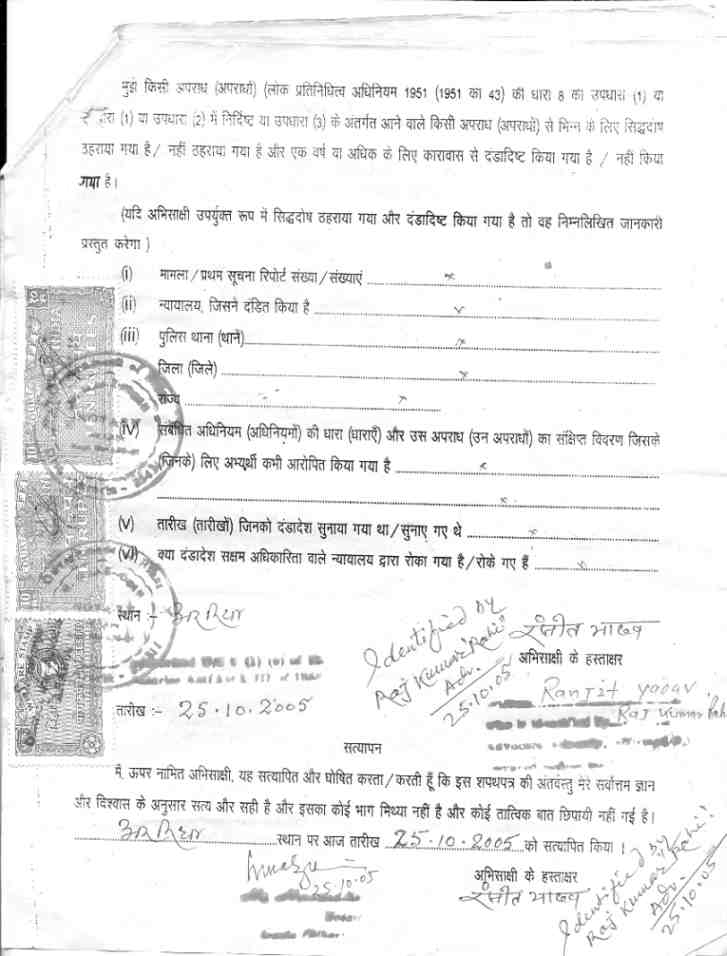 मुझे किसी अपराध (अपराधों) (लोक प्रतिनिधित्व अधिनियम 1951 (1951 का 43) की धारा 8 की उपधारा (1) या
(1) या उपधारा (2) में निर्दिष्ट या उपधारा (3) के अंतर्गत आने वाले किसी अपराध (अपराधों) से भिन्न के लिए सिद्धदोष
ठहराया गया है / नहीं ठहराया गया है और एक वर्ष या अधिक के लिए कारावास से दंडादिष्ट किया गया है / नहीं किया
गया है।
(यदि अभिसाक्षी उपर्युक्त रूप में सिद्धदोष ठहराया गया और दंडादिष्ट किया गया है तो वह निम्नलिखित जानकारी
प्रस्तुत करेगा )
(i) मामला / प्रथम सूचना रिपोर्ट संख्या / संख्याएं x
(ii) न्यायालय, जिसने दंडित किया है
(iii) पुलिस थाना (थानें) x
जिला (जिले) x
राज्य x
(iv) संबंधित अधिनियम (अधिनियमों) की धारा (धाराएँ) और उस अपराध (उन अपराधों) का संक्षिप्त विवरण जिसके
(जिनके) लिए अभ्यर्थी कभी आरोपित किया गया है x
x
(v) तारीख (तारीखों) जिनको दंडादेश सुनाया गया था / सुनाए गए थे x
(vi) क्या दंडादेश सक्षम अधिकारिता वाले न्यायालय द्वारा रोका गया है / रोके गए हैं x
स्थान :- अररिया
Identified by
Raj Kumar Rahi
Adv.
25.10.05
रंजीत यादव
अभिसाक्षी के हस्ताक्षर
Ranjit Yadav
Raj Kumar Rahi
तारीख :- 25.10.2005
सत्यापन
मैं, ऊपर नामित अभिसाक्षी, यह सत्यापित और घोषित करता / करती हूँ कि इस शपथपत्र की अंतर्वस्तु मेरे सर्वोत्तम ज्ञान
और विश्वास के अनुसार सत्य और सही है और इसका कोई भाग मिथ्या नहीं है और कोई तात्विक बात छिपायी नहीं गई है।
अररिया स्थान पर आज तारीख 25.10.2005 को सत्यापित किया।
25.10.05
अभिसाक्षी के हस्ताक्षर
रंजीत यादव
Identified by
Raj Kumar Rahi
Adv.
25.10.05